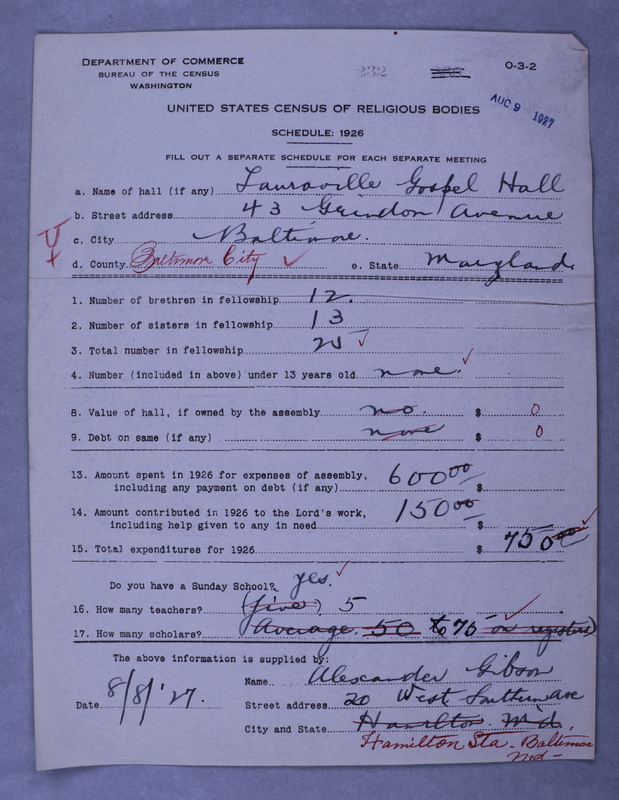 DEPARTMENT OF COMMERCE
BUREAU OF THE CENSUS
WASHINGTON
232
O-3-2
AUG 9 1927
UNITED STATES CENSUS OF RELIGIOUS BODIES
SCHEDULE: 1926
FILL OUT A SEPARATE SCHEDULE FOR EACH SEPARATE MEETING
a. Name of hall (if any) Lauraville Gospel Hall
b. Street address 43 Grindon Avenue
c. City Baltimore.
d. County Baltimore City ✓ e. State Maryland.
1. Number of brethren in fellowship 12.
2. Number of sisters in fellowship 13
3. Total number in fellowship 25 ✓
4. Number (included in above) under 13 years old none. ✓
8. Value of hall, if owned by the assembly no. $ 0
9. Debt on same (if any) none $ 0
13. Amount spent in 1926 for expenses of assembly,
including any payment on debt (if any) 600 00 $
14. Amount contributed in 1926 to the Lord's work,
including help given to any in need 150 00 $
15. Total expenditures for 1926 $ 750 00 ✓
Do you have a Sunday School? yes. ✓
16. How many teachers? (five) 5 ✓
17. How many scholars? Average. 50 to 75 on register)
The above information is supplied by:
Name Alexander Gibson
Date 8/8/'27. Street address 20 West Southern ave
City and State Hamilton. Md.
Hamilton Sta. - Baltimore
Md -